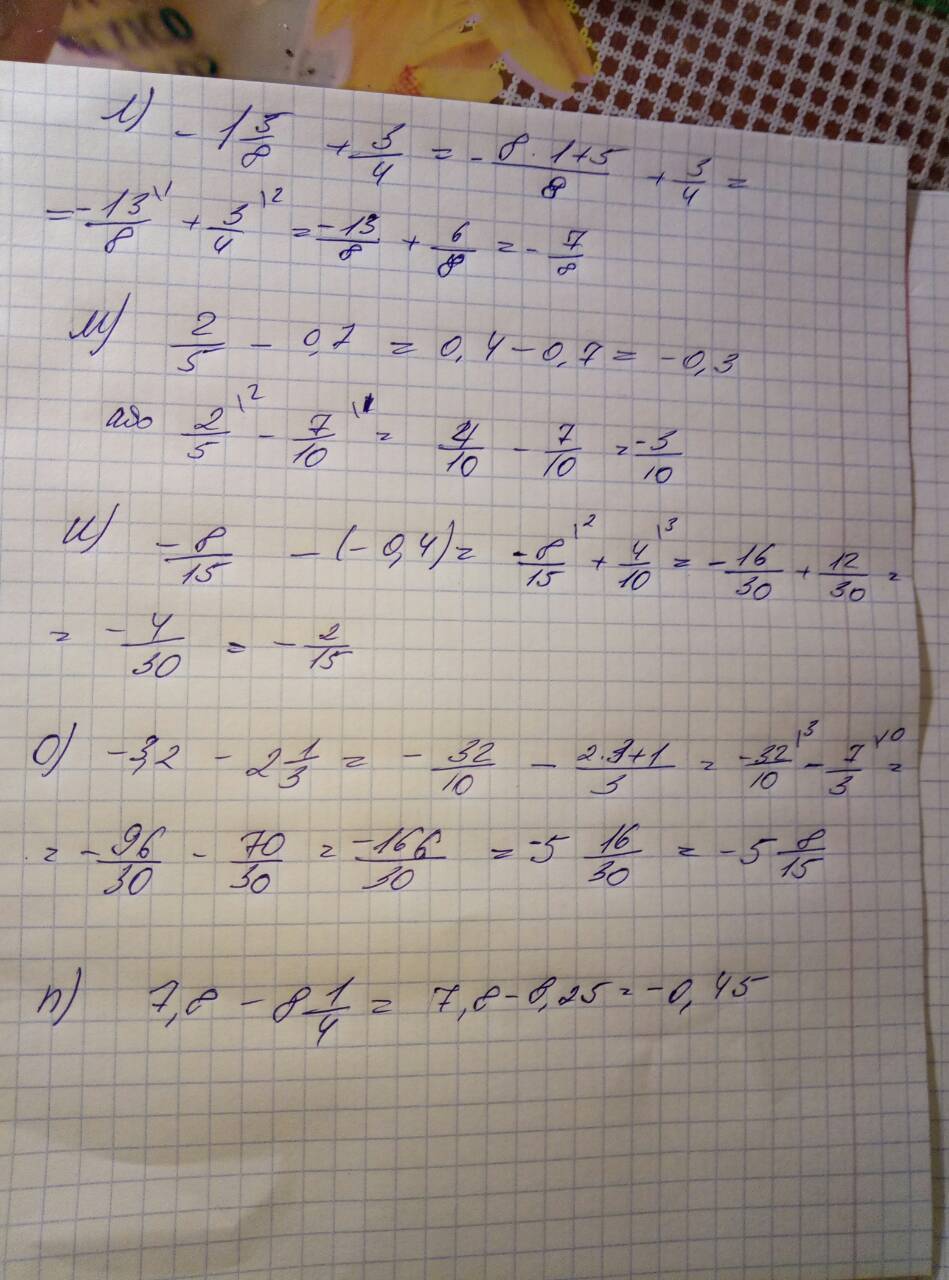 л) -1 5/8 + 3/4 = - (8·1+5)/8 + 3/4 =
= -13/8 \1 + 3/4 \2 = -13/8 + 6/8 = - 7/8
м) 2/5 - 0,7 = 0,4 - 0,7 = -0,3
або 2/5 \2 - 7/10 \1 = 4/10 - 7/10 = -3/10
н) -8/15 - (-0,4) = -8/15 \2 + 4/10 \3 = - 16/30 + 12/30 =
= - 4/30 = - 2/15
о) -3,2 - 2 1/3 = - 32/10 - (2·3+1)/3 = -32/10 \3 - 7/3 \10 =
= - 96/30 - 70/30 = -166/30 = -5 16/30 = -5 8/15
п) 7,8 - 8 1/4 = 7,8 - 8,25 = -0,45